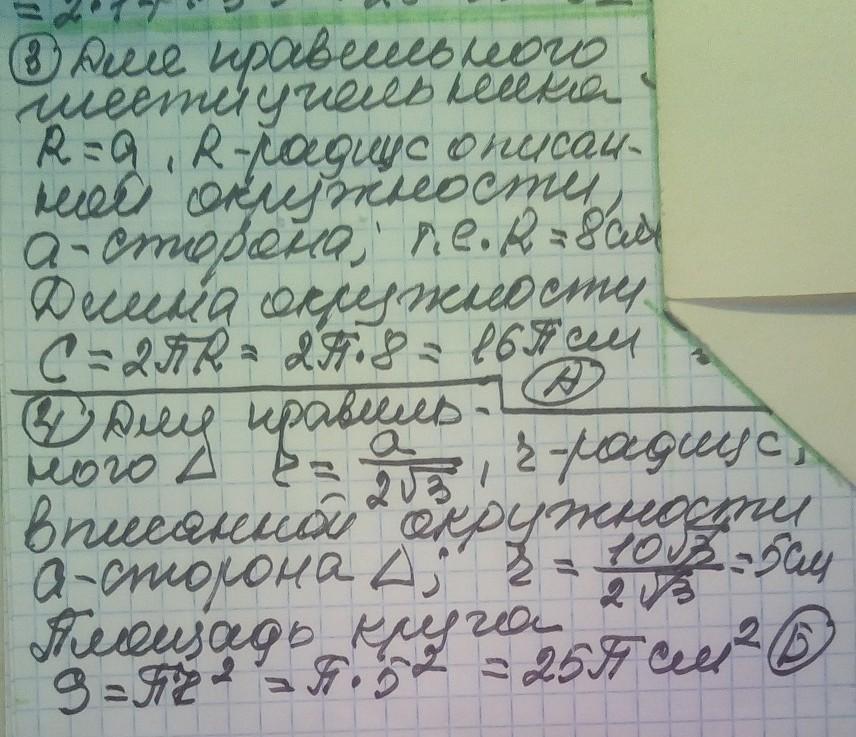 ③ Для правильного
шестиугольника
R = a, R-радиус описан-
ной окружности,
a-сторона; т.е. R = 8 см
Длина окружности
C = 2πR = 2π·8 = 16π см
А
④ Для правиль-
ного Δ r = a/2√3, r-радиус
вписанной окружности
a-сторона Δ; r = 10√3/2√3 = 5 см
Площадь круга
S = πr² = π·5² = 25π см² Б